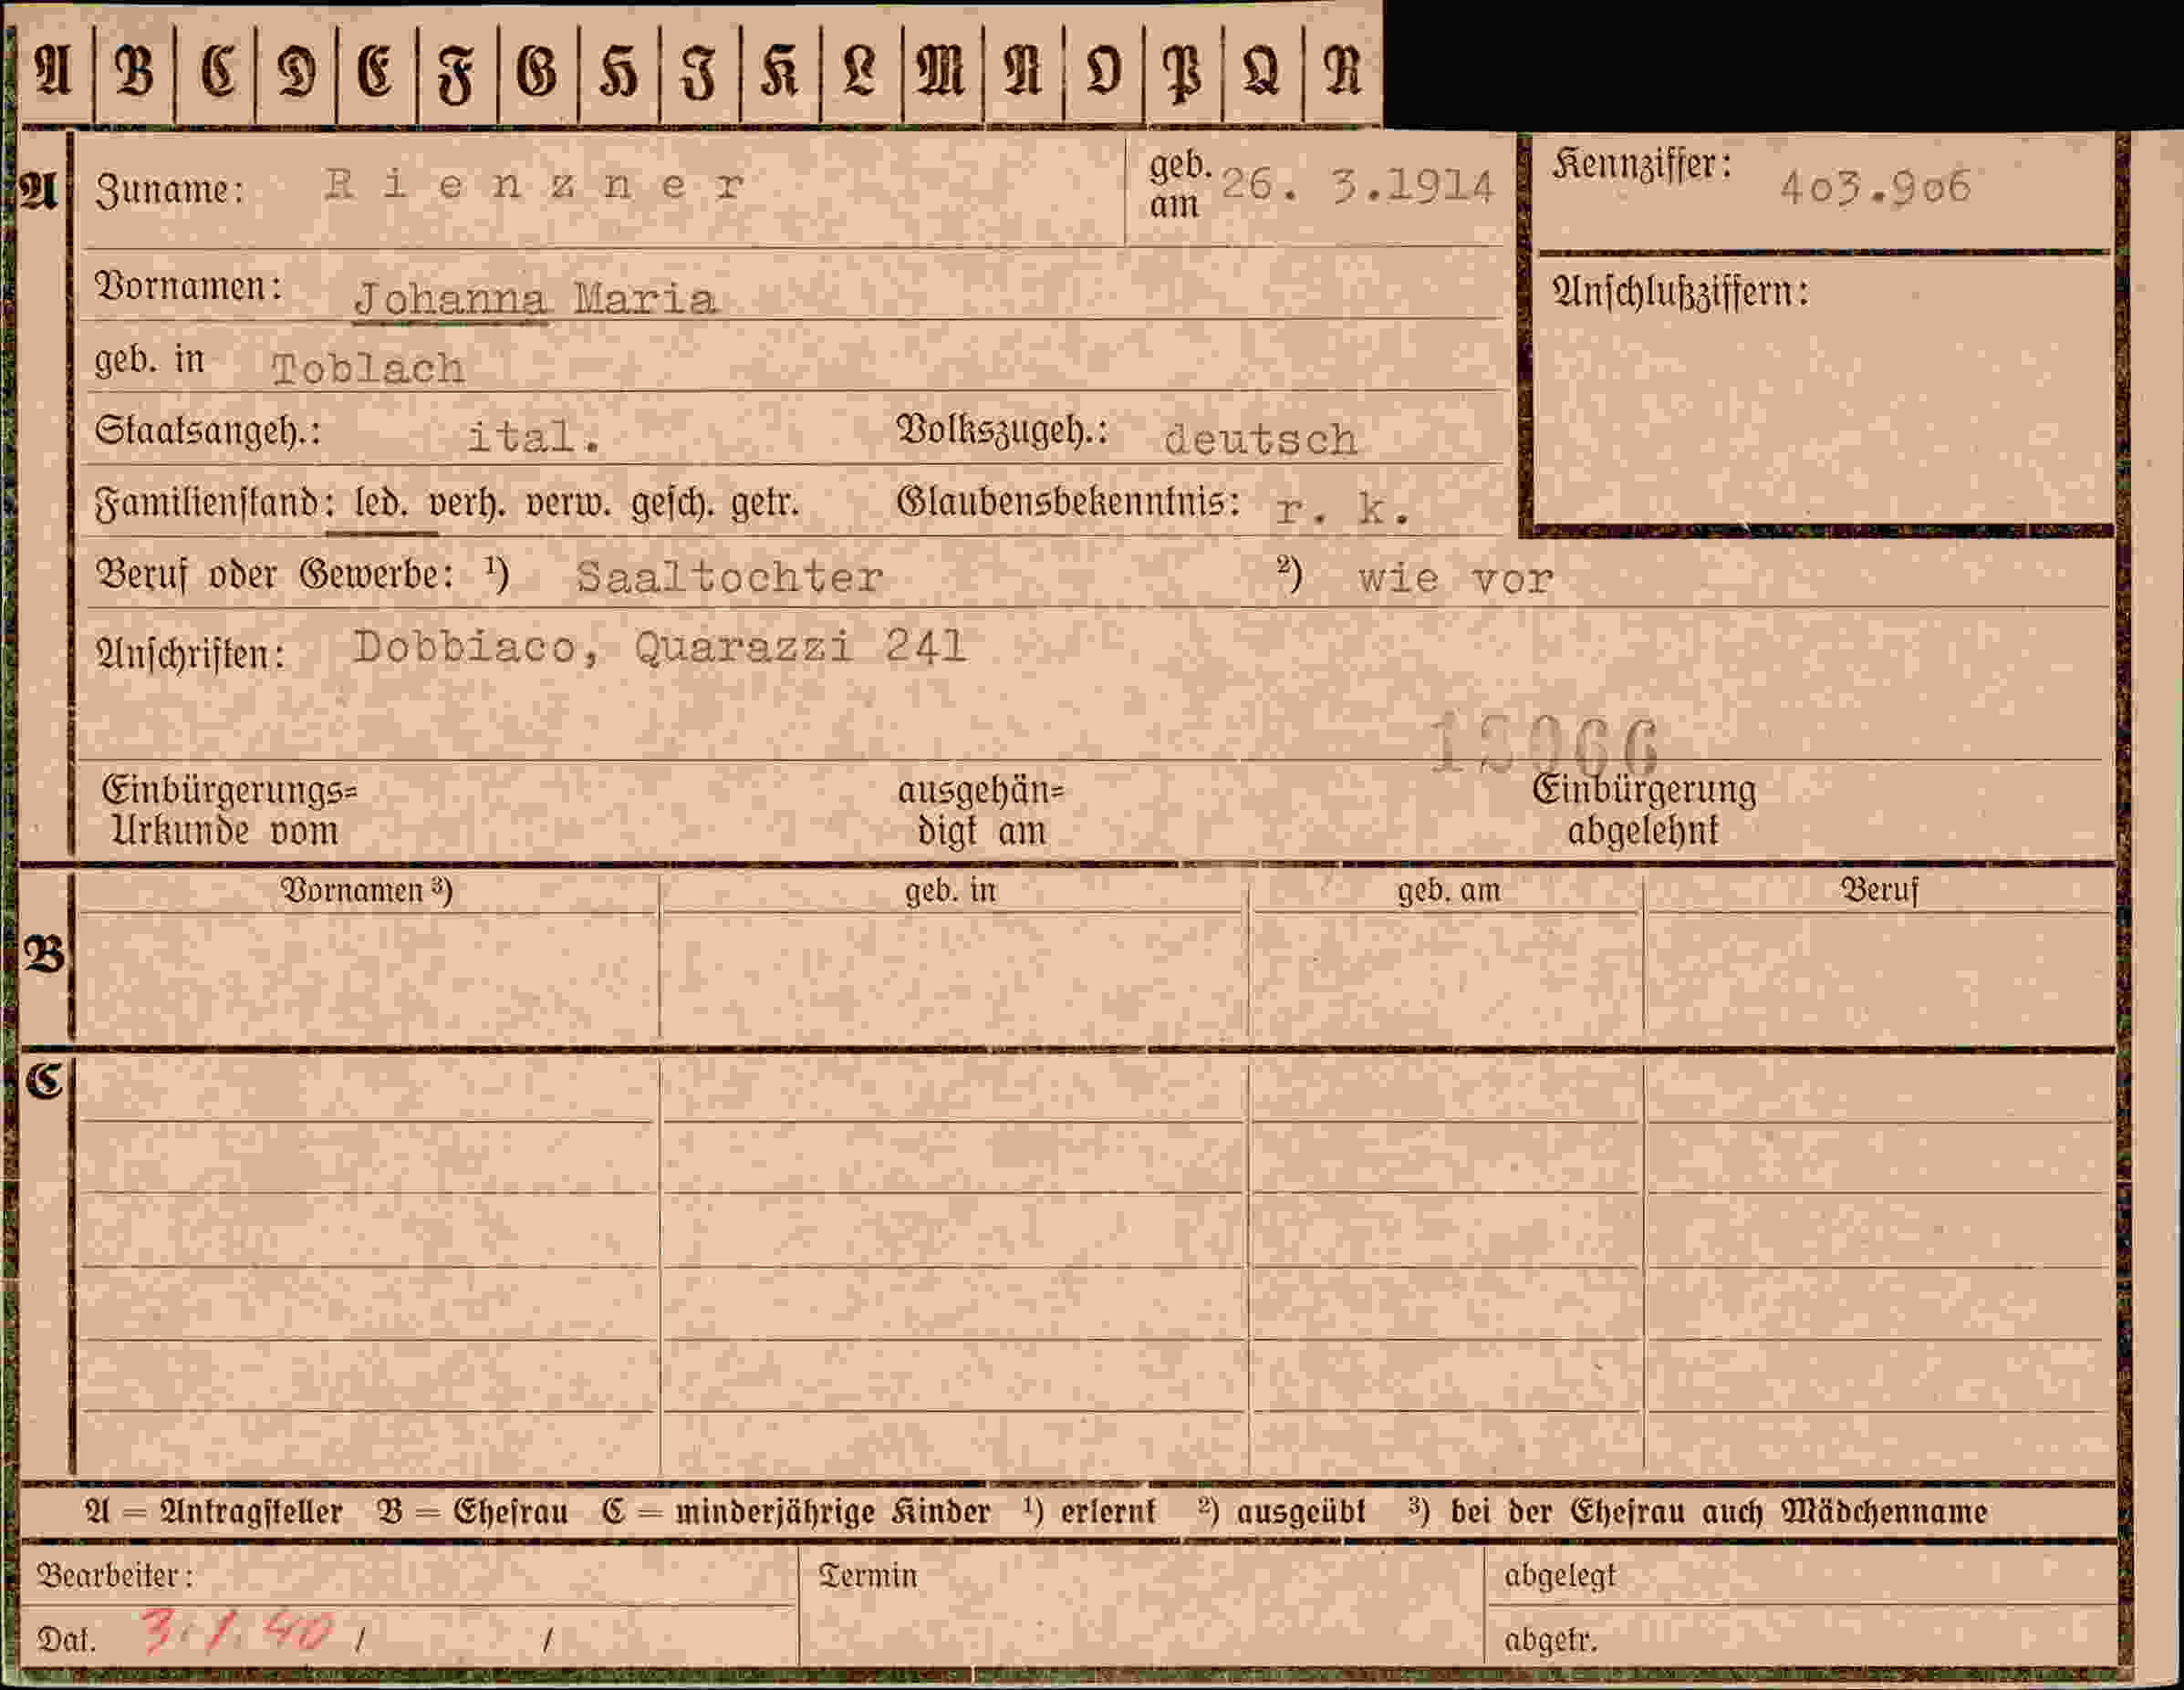 A B C D E F G H J K L M N O P Q R
A Zuname: Rienzner geb. am 26. 3.1914 Kennziffer: 403.906
Vornamen: Johanna Maria Anschlußziffern:
geb. in Toblach
Staatsangeh.: ital. Volkszugeh.: deutsch
Familienstand: led. verh. verw. gesch. getr. Glaubensbekenntnis: r. k.
Beruf oder Gewerbe: ¹) Saaltochter ²) wie vor
Anschriften: Dobbiaco, Quarazzi 241
Einbürgerungs= ausgehän= Einbürgerung
Urkunde vom digt am abgelehnt
Vornamen ³) geb. in geb. am Beruf
B
C
A = Antragsteller B = Ehefrau C = minderjährige Kinder ¹) erlernt ²) ausgeübt ³) bei der Ehefrau auch Mädchenname
Bearbeiter: Termin abgelegt
Dat. 3.1.40 / / abgetr.